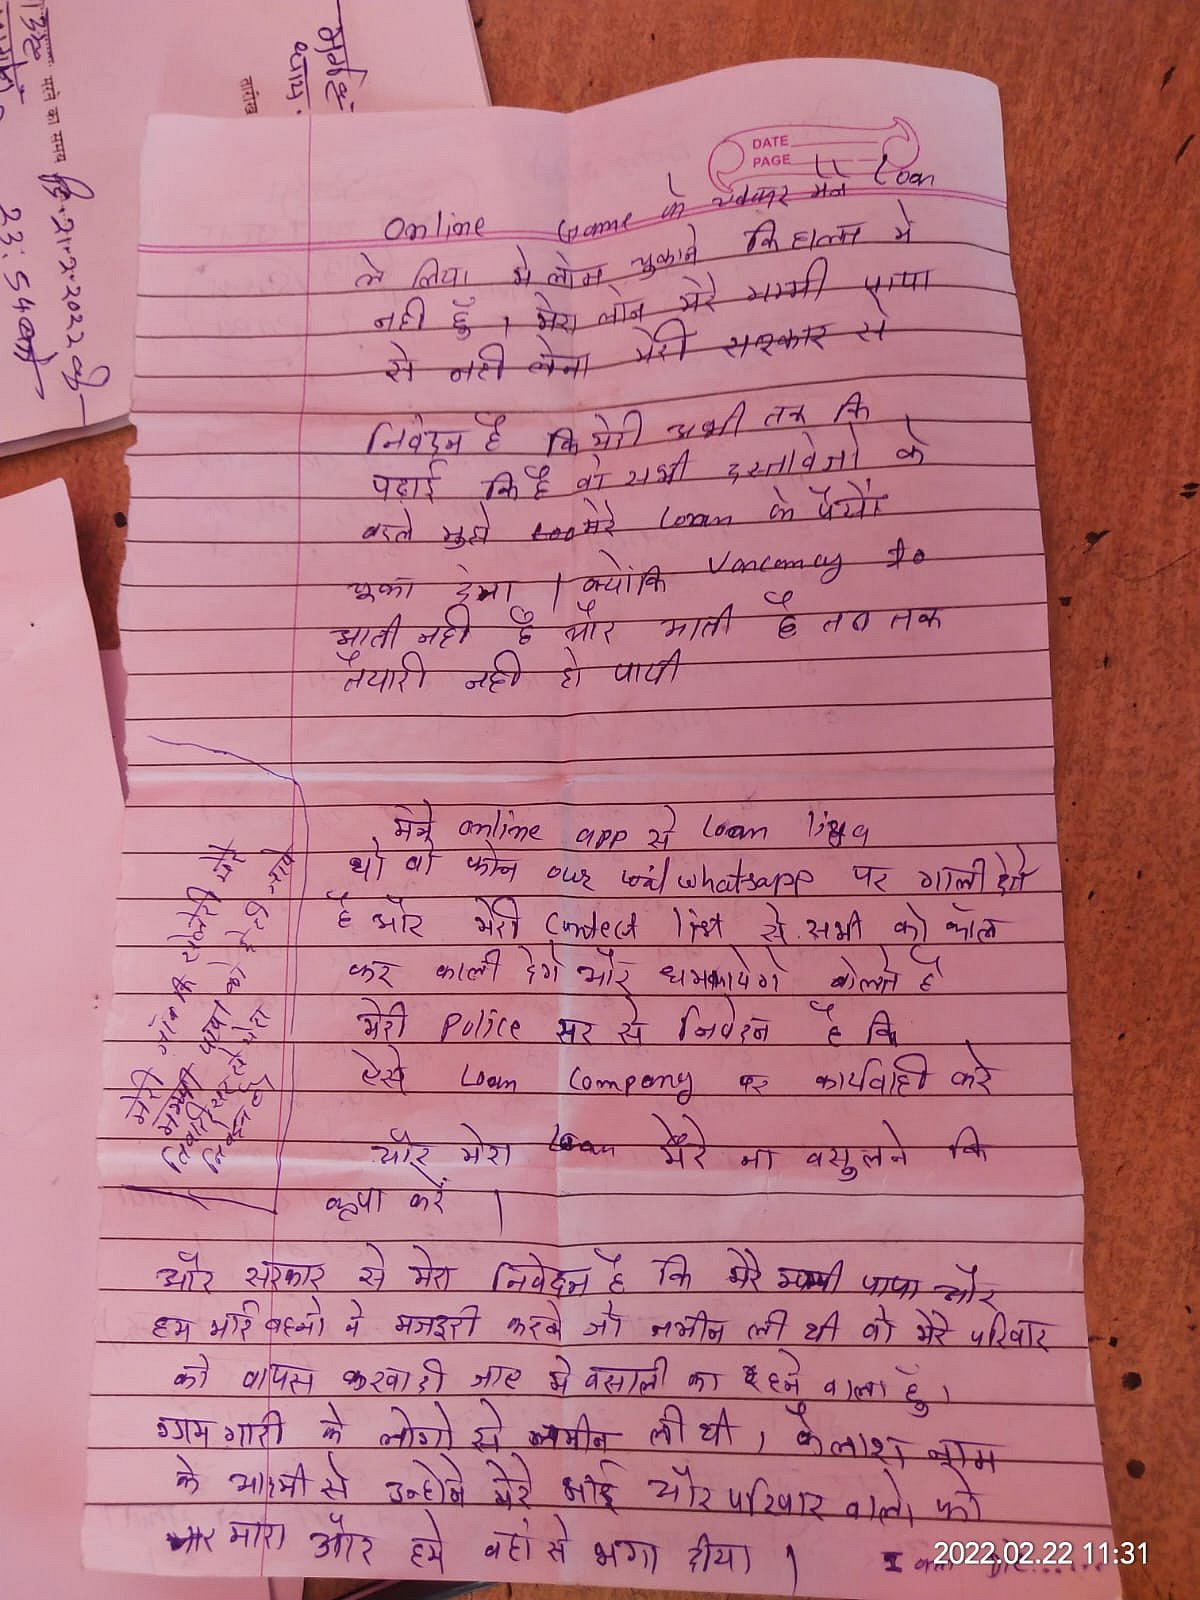 DATE
PAGE
Online Game के चक्कर मेने Loan
ले लिया मे लोन चुकाने कि हालत मे
नही हुँ । मेरा लोन मेरे मम्मी पापा
से नही लेना मेरी सरकार से
निवेदन है कि मेरी अभी तक कि
पढाई कि है वो सभी दस्तावेजो के
बदले मुझे मेरे Loan के पैसे
चूका देना । क्योंकि Vancancy
आती नही है और आती है तब तक
तैयारी नही हो पायी
मेने online app से Loan लिया
था वो फोन our whatsapp पर गाली देते
है और मेरी Contect list से सभी को कॉल
कर काली देगे और धमकायेगे बोलते है
मेरी Police सर से निवेदन है कि
ऐसे Loan Company पर कार्यवाही करे
और मेरा Loan मेरे ना वसुलने कि
कृपा करें ।
मेरी गॉव कि मेरे
मम्मी पापा को दे दी जाये
तिवारी सर से मेरा
निवेदन है
और सरकार से मेरा निवेदन है कि मेरे मम्मी पापा और
हम भाई बहनो ने मजदुरी करके जो जमीन ली थी वो मेरे परिवार
को वापस करवा दी जाए मे वसाली का रहने वाला हुँ ।
ग्राम गारी के लोगो से जमीन ली थी , कैलाश नाम
के आदमी से उन्होने मेरे भाई और परिवार वालो को
मारा और हमे वहां से भगा दीया ।
2022.02.22 11:31
तारीख
23:54